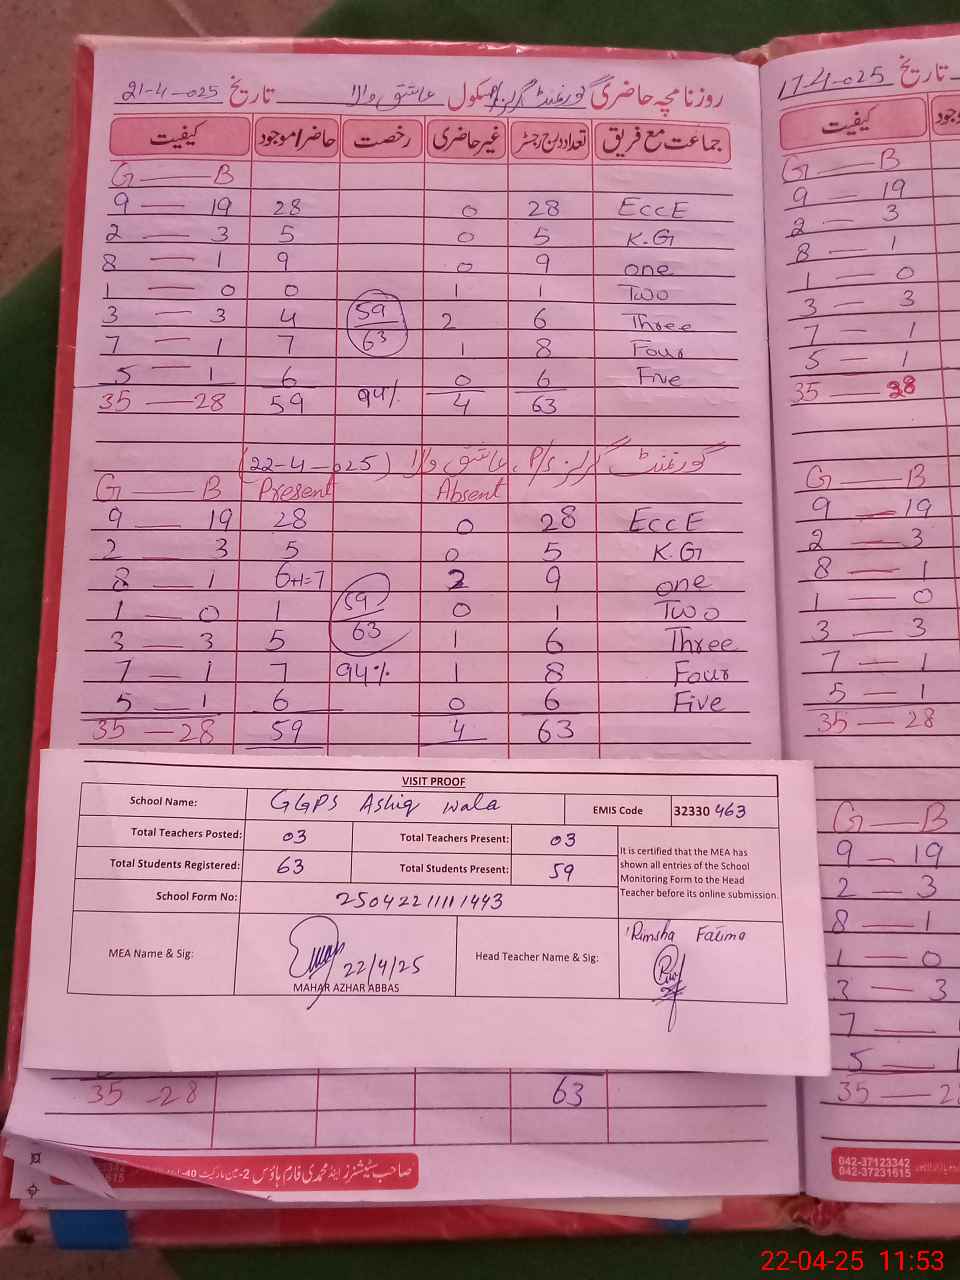 روزنامچہ حاضری گورنمنٹ گرلز P/S سکول عاشق والا تاریخ 21-4-025
جماعت مع فریق تعداد درج رجسٹر غیر حاضری رخصت حاضر/موجود کیفیت
G — B
9 — 19 28 0 28 EccE
2 — 3 5 0 5 K.G
8 — 1 9 0 9 one
1 — 0 0 1 1 Two
3 — 3 4 59 2 6 Three
7 — 1 7 63 1 8 Four
5 — 1 6 0 6 Five
35 — 28 59 94% 4 63
گورنمنٹ گرلز P/s عاشق والا (22-4-025)
G — B Present Absent
9 — 19 28 0 28 EccE
2 — 3 5 0 5 K.G
8 — 1 6+1=7 2 9 one
1 — 0 1 59 0 1 Two
3 — 3 5 63 1 6 Three
7 — 1 7 94% 1 8 Four
5 — 1 6 0 6 Five
35 — 28 59 4 63
VISIT PROOF
School Name: GGPS Ashiq wala EMIS Code 32330 463
Total Teachers Posted: 03 Total Teachers Present: 03
Total Students Registered: 63 Total Students Present: 59
It is certified that the MEA has
shown all entries of the School
Monitoring Form to the Head
Teacher before its online submission.
School Form No: 25042211111443
MEA Name & Sig: 22/4/25
MAHAR AZHAR ABBAS
Head Teacher Name & Sig: Rimsha Fatima
35 - 28 63
صاحب سٹیشنرز اینڈ محمدی فارم ہاؤس 2-مین مارکیٹ 40-
تاریخ 17-4-025
کیفیت
G — B
9 — 19
2 — 3
8 — 1
1 — 0
3 — 3
7 — 1
5 — 1
35 — 28
G — B
9 — 19
2 — 3
8 — 1
1 — 0
3 — 3
7 — 1
5 — 1
35 — 28
G — B
9 — 19
2 — 3
8 — 1
1 — 0
3 — 3
7 —
5 —
35 —
042-37123342
042-37231615
22-04-25 11:53